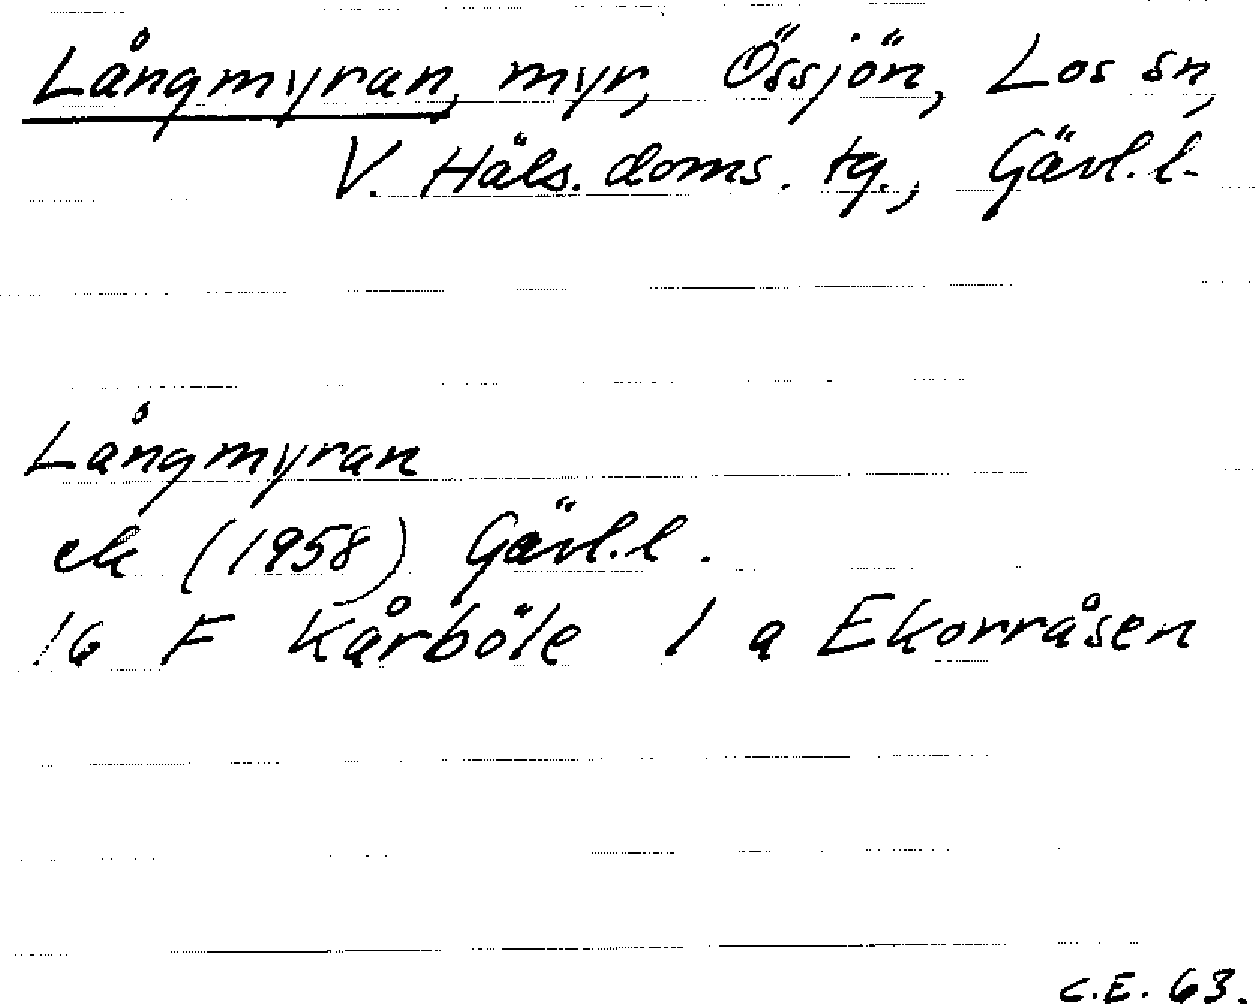 Långmyran, myr, Össjön, Los sn,
V. Häls. doms. tg., Gävl.l.
Långmyran
ek (1958) Gävl.l.
16 F Kårböle 1 a Ekorråsen
C.E. 63.